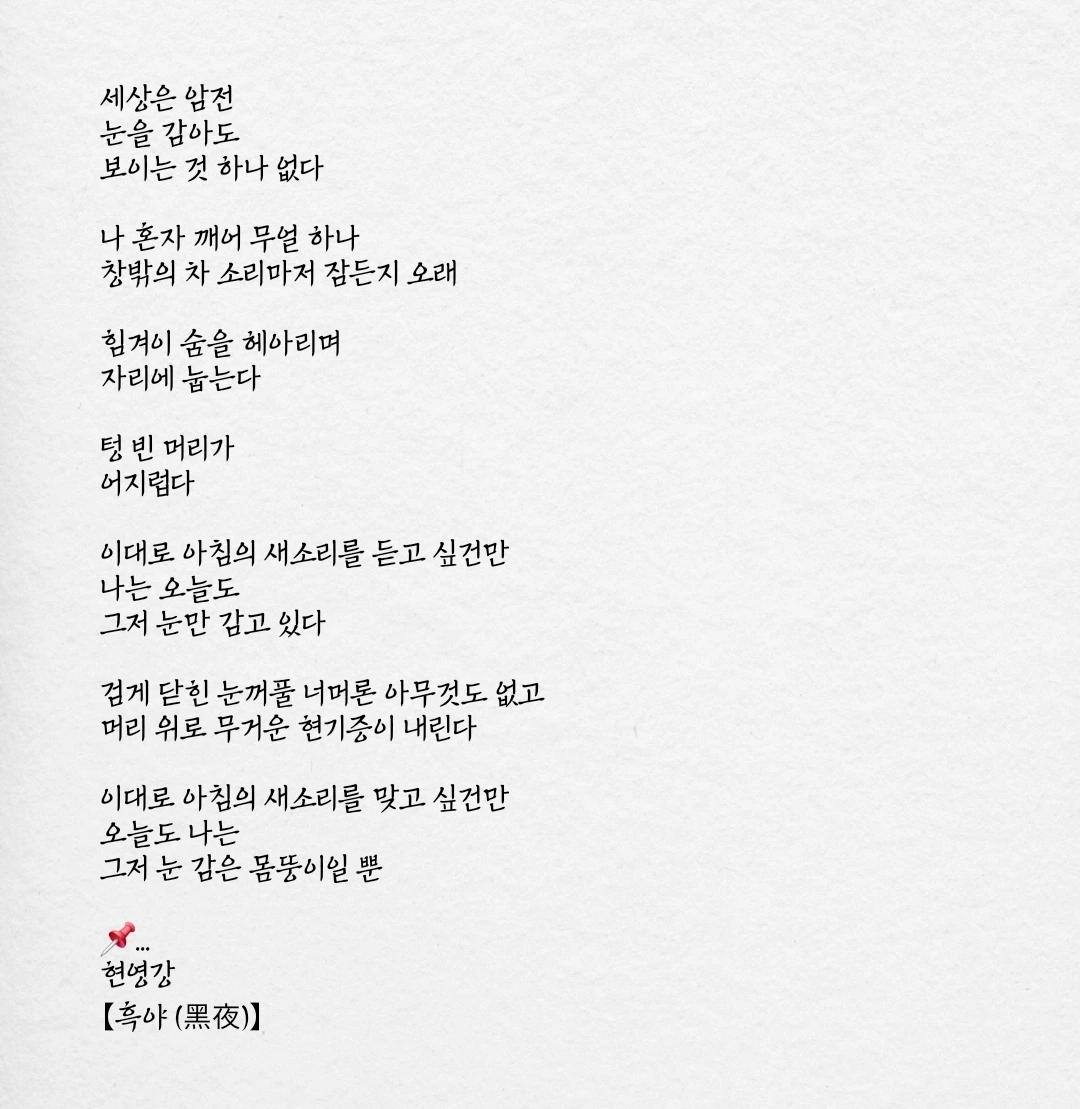 세상은 암전
눈을 감아도
보이는 것 하나 없다
나 혼자 깨어 무얼 하나
창밖의 차 소리마저 잠든지 오래
힘겨이 숨을 헤아리며
자리에 눕는다
텅 빈 머리가
어지럽다
이대로 아침의 새소리를 듣고 싶건만
나는 오늘도
그저 눈만 감고 있다
검게 닫힌 눈꺼풀 너머론 아무것도 없고
머리 위로 무거운 현기증이 내린다
이대로 아침의 새소리를 맞고 싶건만
오늘도 나는
그저 눈 감은 몸뚱이일 뿐
📌...
현영강
【흑야 (黑夜)】